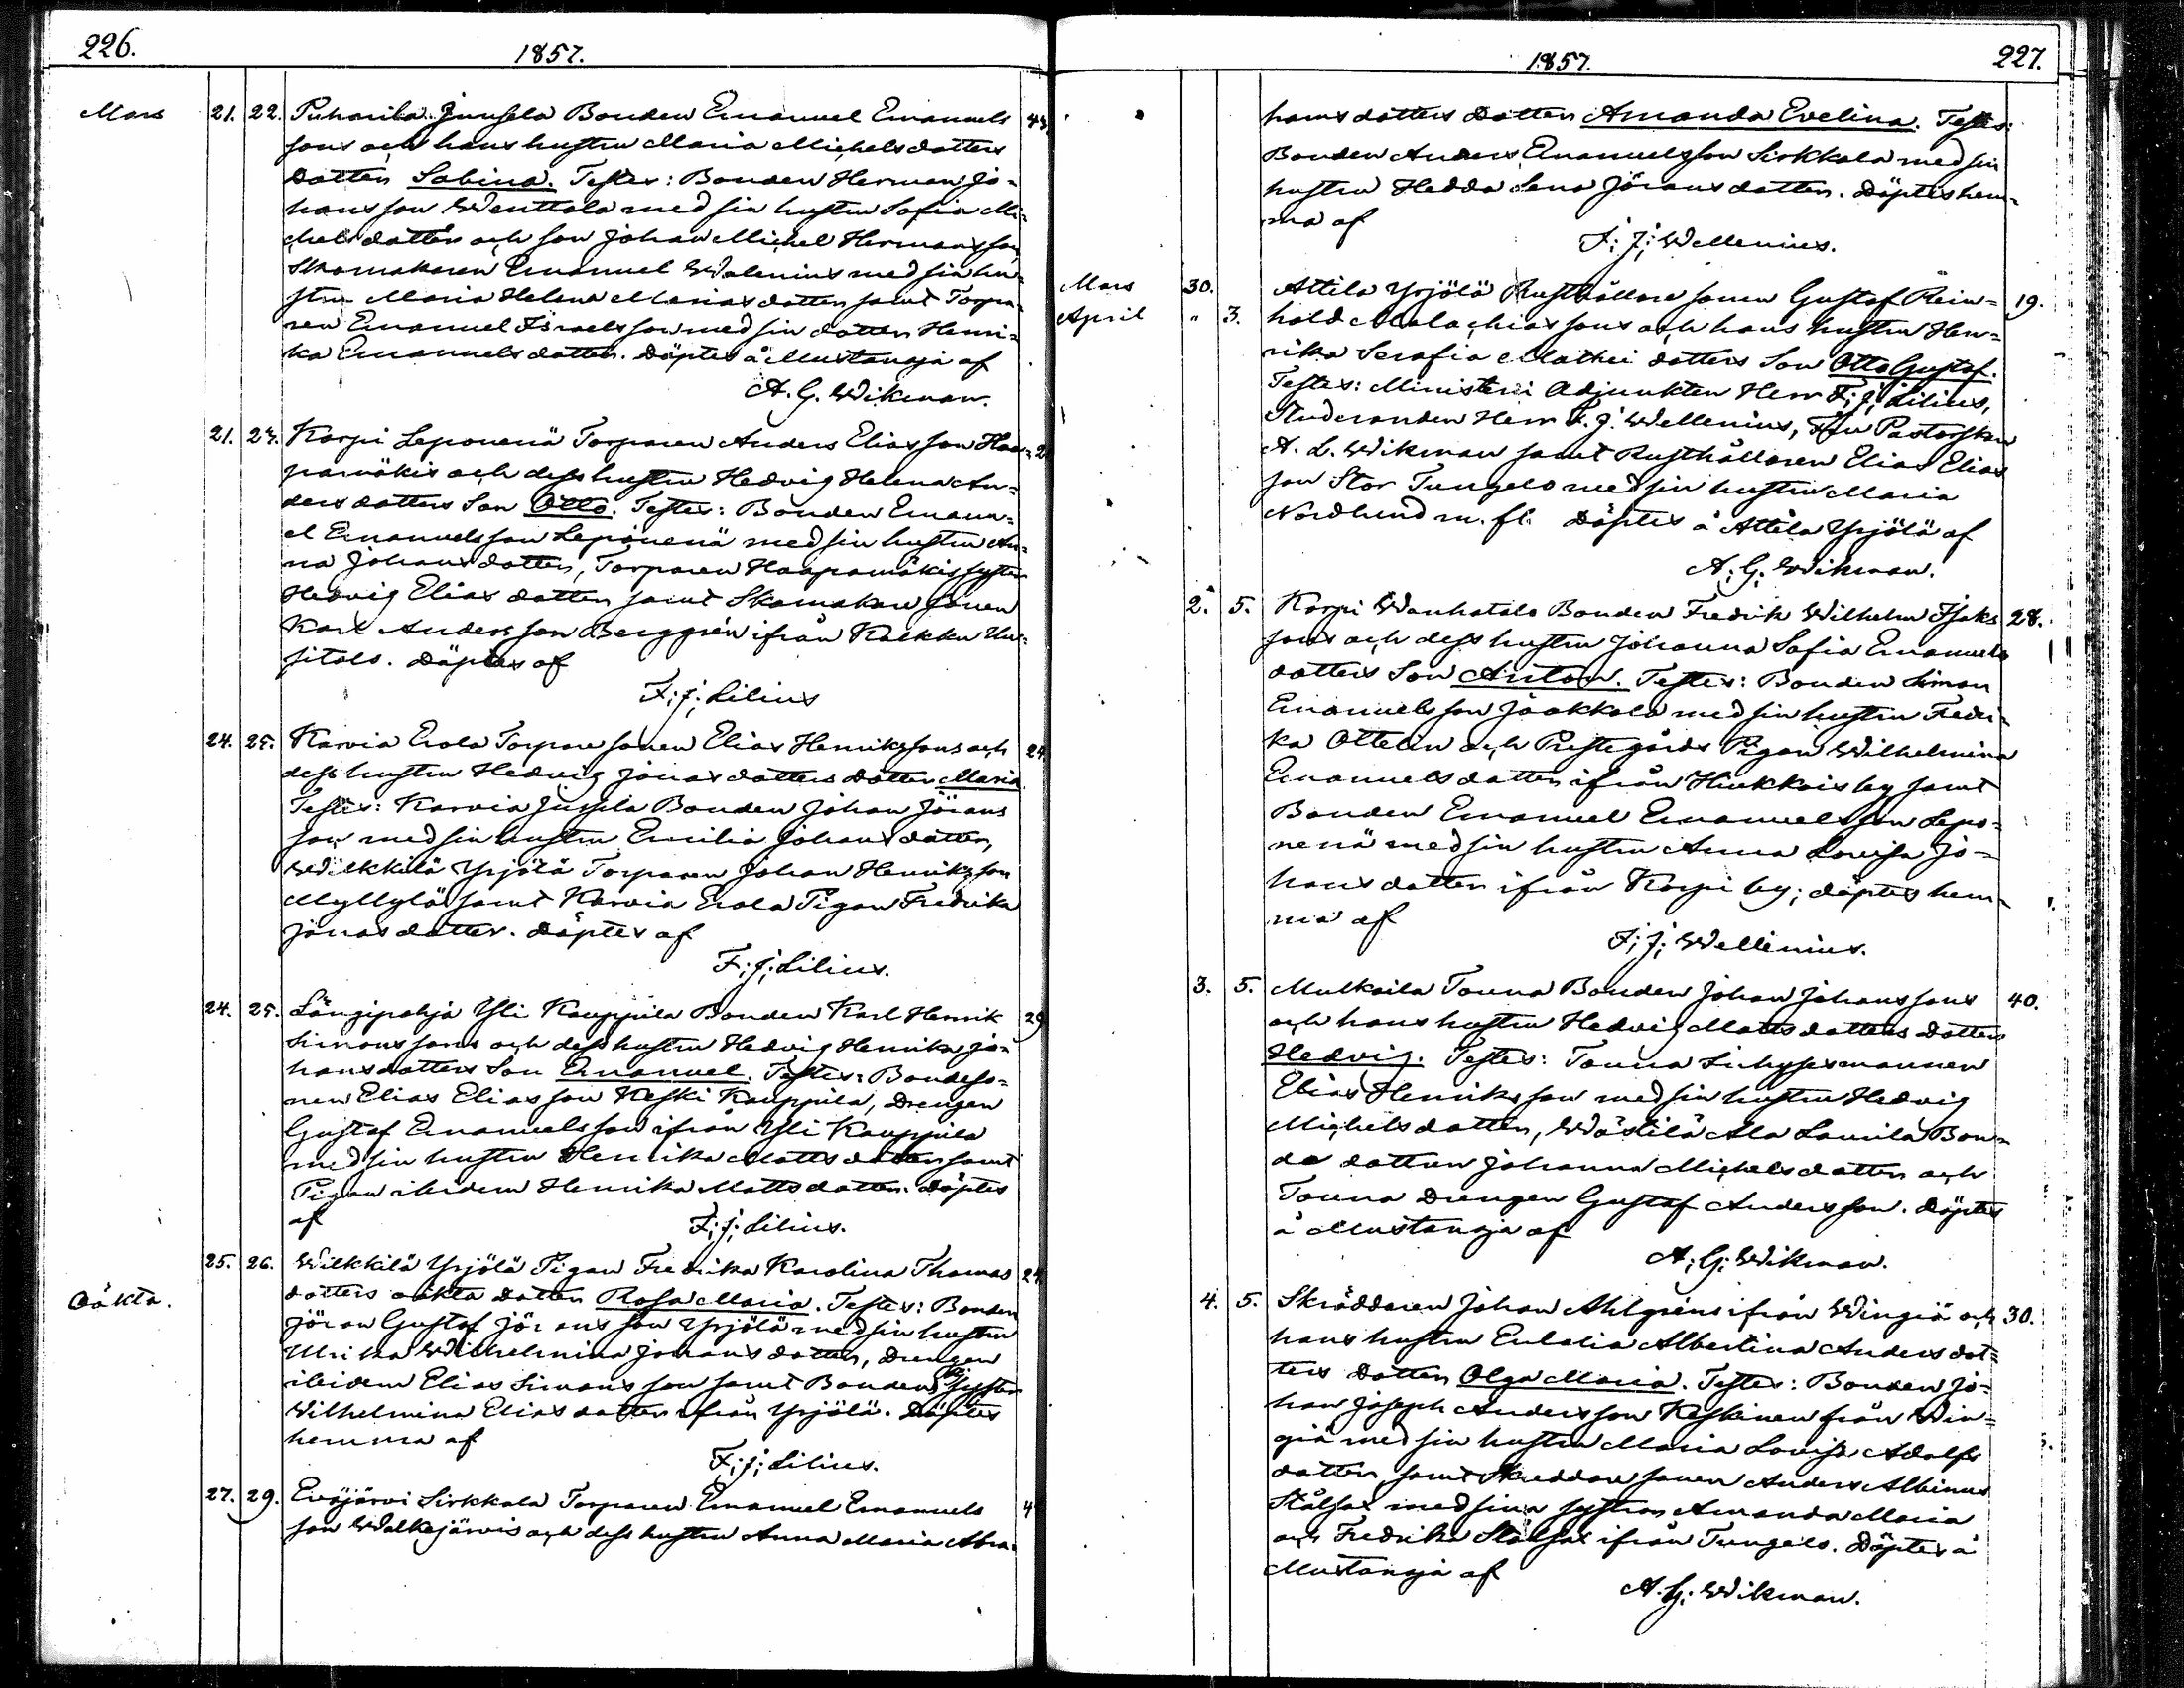 226.
1857.
Mars 21. 22. Puharila Juusela Bonden Emanuel Emanuels 43.
sons och hans hustru Maria Michelsdotters
Dotter Sabina. Testes: Bonden Herman Jo-
hansson Wenttola med sin hustru Sofia Mi-
chelsdotter och son Johan Michel Hermansson
Skomakaren Emanuel Walenius med sin hu-
stru Maria Helena Mariasdotter samt Torpa-
ren Emanuel Israelsson med sin dotter Henri-
ka Emanuelsdotter. Döptes å Mustanoja af
A. G. Wikman.
21. 24. Karpi Leponenä Torparen Anders Eliasson Haa-
pamäkis och dess hustru Hedvig Helena An-
dersdotters Son Otto. Testes: Bonden Emanu-
el Emanuelsson Leponenä med sin hustru An-
na Johansdotter, Torparen Haapamäkis syster
Hedvig Eliasdotter samt Skomakare sonen
Karl Andersson Berggrén ifrån Kalkku Uu-
sitalo. Döptes af
F; J; Lilius
24. 25. Karvia Erola Torpare sonen Elias Henrikssons och 24.
dess hustru Hedvig Jonasdotters dotter Maria.
Testes: Karvia Jussila Bonden Johan Jörans
son med sin hustru Emilia Johansdotter,
Wilkkilä Yrjölä Torparen Johan Henriksson
Myllylä samt Karvia Erola Pigan Fredrika
Jonasdotter. Döptes af
F; J; Lilius.
24. 25. Längipohja Yli Kauppila Bonden Karl Henrik 29
Simonssons och dess hustru Hedvig Henrika Jo-
hansdotters Son Emanuel. Testes: Bondeso-
nen Elias Eliasson Keski Kauppila, Drengen
Gustaf Emanuelsson ifrån Yli Kauppila
med sin hustru Henrika Mattsdotter samt
Pigan ibidem Henrika Mattsdotter. Döptes
af
F; J; Lilius.
25. 26. Wilkkilä Yrjölä Pigan Fredrika Karolina Thomas 24
Oäkta. dotters oäkta dotter Rosa Maria. Testes: Bonden
Jöran Gustaf Jöransson Yrjölä med sin hustru
Ulrika Wilhelmina Johansdotter, Drengen
ibidem Elias Simonsson samt Bondens syster
Wilhelmina Eliasdotter ifrån Yrjölä. Döptes
hemma af
F; J; Lilius.
27. 29. Eväjärvi Sirkkala Torparen Emanuel Emanuels 4
son Walkejärvis och dess hustru Anna Maria Abra-
1857.
227.
hamsdotters Dotter Amanda Evelina. Testes:
Bonden Anders Emanuelsson Sirkkala med sin
hustru Hedda Lena Jöransdotter. Döptes hem-
ma af
F; J; Wellenius.
Mars 30. Attila Yrjölä Rusthållare sonen Gustaf Rein- 19.
April " 3. hold Malachiassons och hans hustru Hen-
rika Serafia Mathei dotters Son Otto Gustaf.
Testes: Ministerii Adjunkten Herr F; J; Lilius,
Studeranden Herr F. J. Wellenius, Fru Pastorskan
A. L. Wikman samt Rusthållaren Elias Elias
son Stor Tungelo med sin hustru Maria
Nordlund m. fl. Döptes å Attila Yrjölä af
A; G; Wikman.
2. 5. Korpi Wanhatalo Bonden Fredrik Wilhelm Isaks 28.
sons och dess hustru Johanna Sofia Emanuels
dotters Son Anton. Testes: Bonden Simon
Emanuelsson Jaakkola med sin hustru Fredri-
ka Ottelin och Prestegårds Pigan Wilhelmina
Emanuelsdotter ifrån Hiukkais by samt
Bonden Emanuel Emanuelsson Lepo-
nenä med sin hustru Anna Lovisa Jo-
hansdotter ifrån Korpi by; döptes hem-
ma af
F; J; Wellenius.
3. 5. Mulkoila Touna Bonden Johan Johanssons 40.
och hans hustru Hedvig Mattsdotters dotter
Hedvig. Testes: Touna Inhysesmannen
Elias Henriksson med sin hustru Hedvig
Michelsdotter, Wästilä Ala Laurila Bon-
de dottern Johanna Michelsdotter och
Touna Drengen Gustaf Andersson. Döptes
å Mustanoja af
A; G; Wikman.
4. 5. Skräddaren Johan Ahlgréns ifrån Wingiä och 30.
hans hustru Eulalia Albertina Andersdot-
ters Dotter Olga Maria. Testes: Bonden Jo-
han Joseph Andersson Keskinen från Win-
giä med sin hustru Maria Lovisa Adolfs
dotter samt Skreddare sonen Anders Albinus
Stålsax med sina systrar Amanda Maria
och Fredrika Stålsax ifrån Tungelo. Döptes å
Mustanoja af
A. G; Wikman.